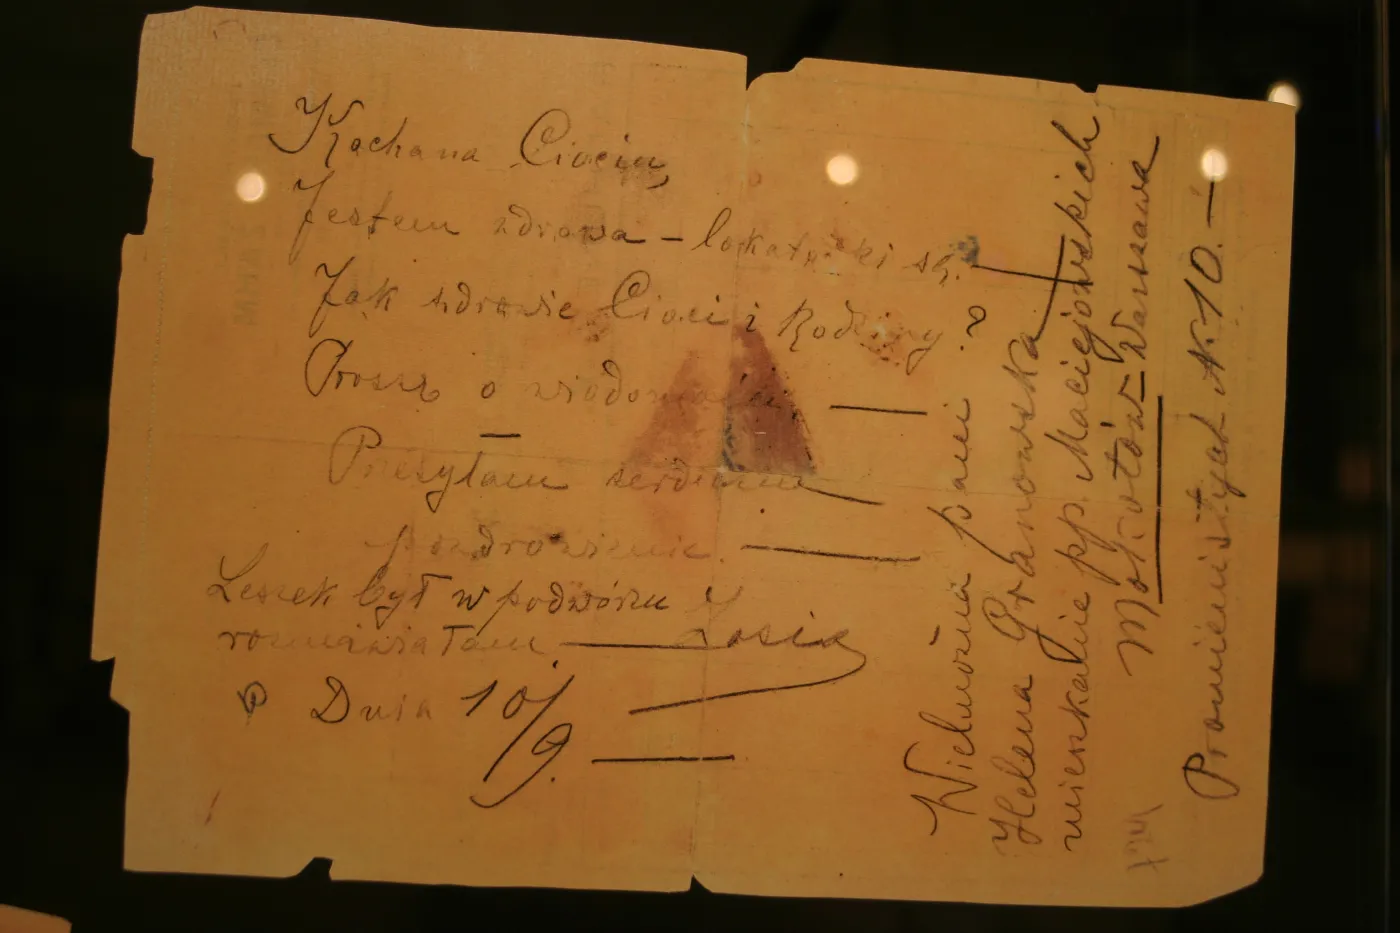 Kochana Ciociu,
Jestem zdrowa – lokatorki są.
Jak zdrowie Cioci i Rodziny?
Proszę o wiadomości —
Przesyłam serdeczne —
pozdrowienie. —
Leszek był w podwórzu
rozmawiałam — Zosia
Dnia 10/9. —
Wielmożna pani
Helena Granowska
mieszkanie pp. Maciejowskich
Mokotów – Warszawa
Promienistych N. 10. —